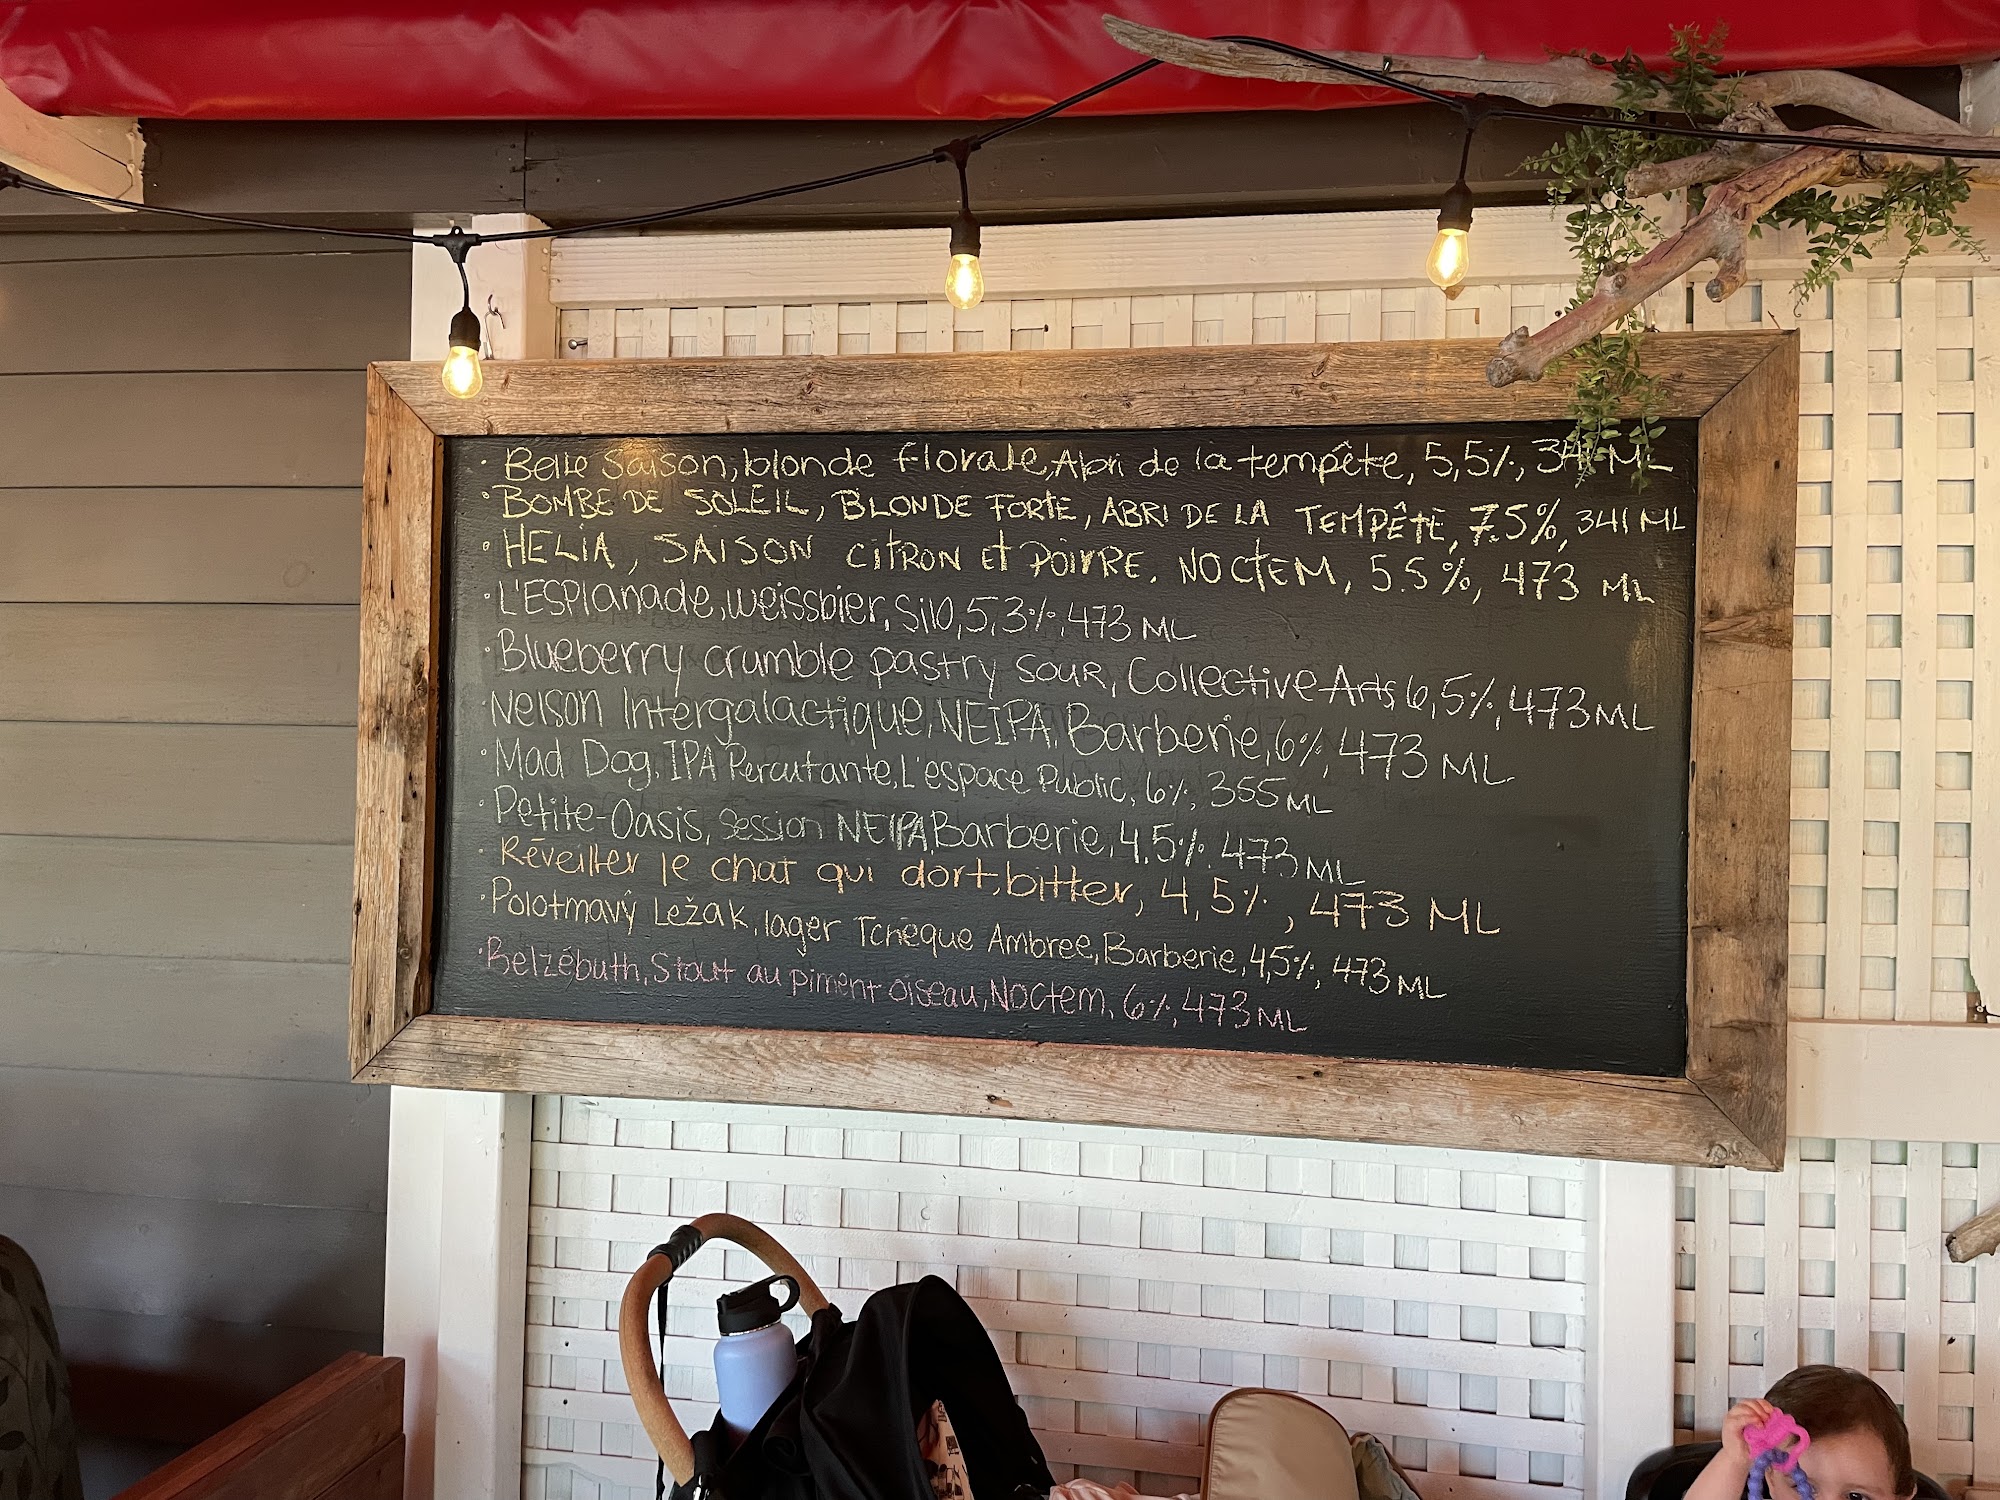 · Belle Saison, blonde florale, Abri de la tempête, 5,5%, 341 ML
· BOMBE DE SOLEIL, BLONDE FORTE, ABRI DE LA TEMPÊTE, 7.5%, 341 ML
· HELIA, SAISON CITRON ET POIVRE, NOCTEM, 5.5%, 473 ML
· L'ESPlanade, weissbier, Silo, 5,3%, 473 ML
· Blueberry crumble pastry sour, Collective Arts 6,5%, 473 ML
· Nelson Intergalactique, NEIPA, Barberie, 6%, 473 ML
· Mad Dog, IPA Percutante, L'espace Public, 6%, 355 ML
· Petite-Oasis, session NEIPA, Barberie, 4.5%, 473 ML
· Réveiller le chat qui dort, bitter, 4,5%, 473 ML
· Polotmavý Ležak, lager Tchèque Ambree, Barberie, 4,5%, 473 ML
· Belzébuth, Stout au piment oiseau, Noctem, 6%, 473 ML